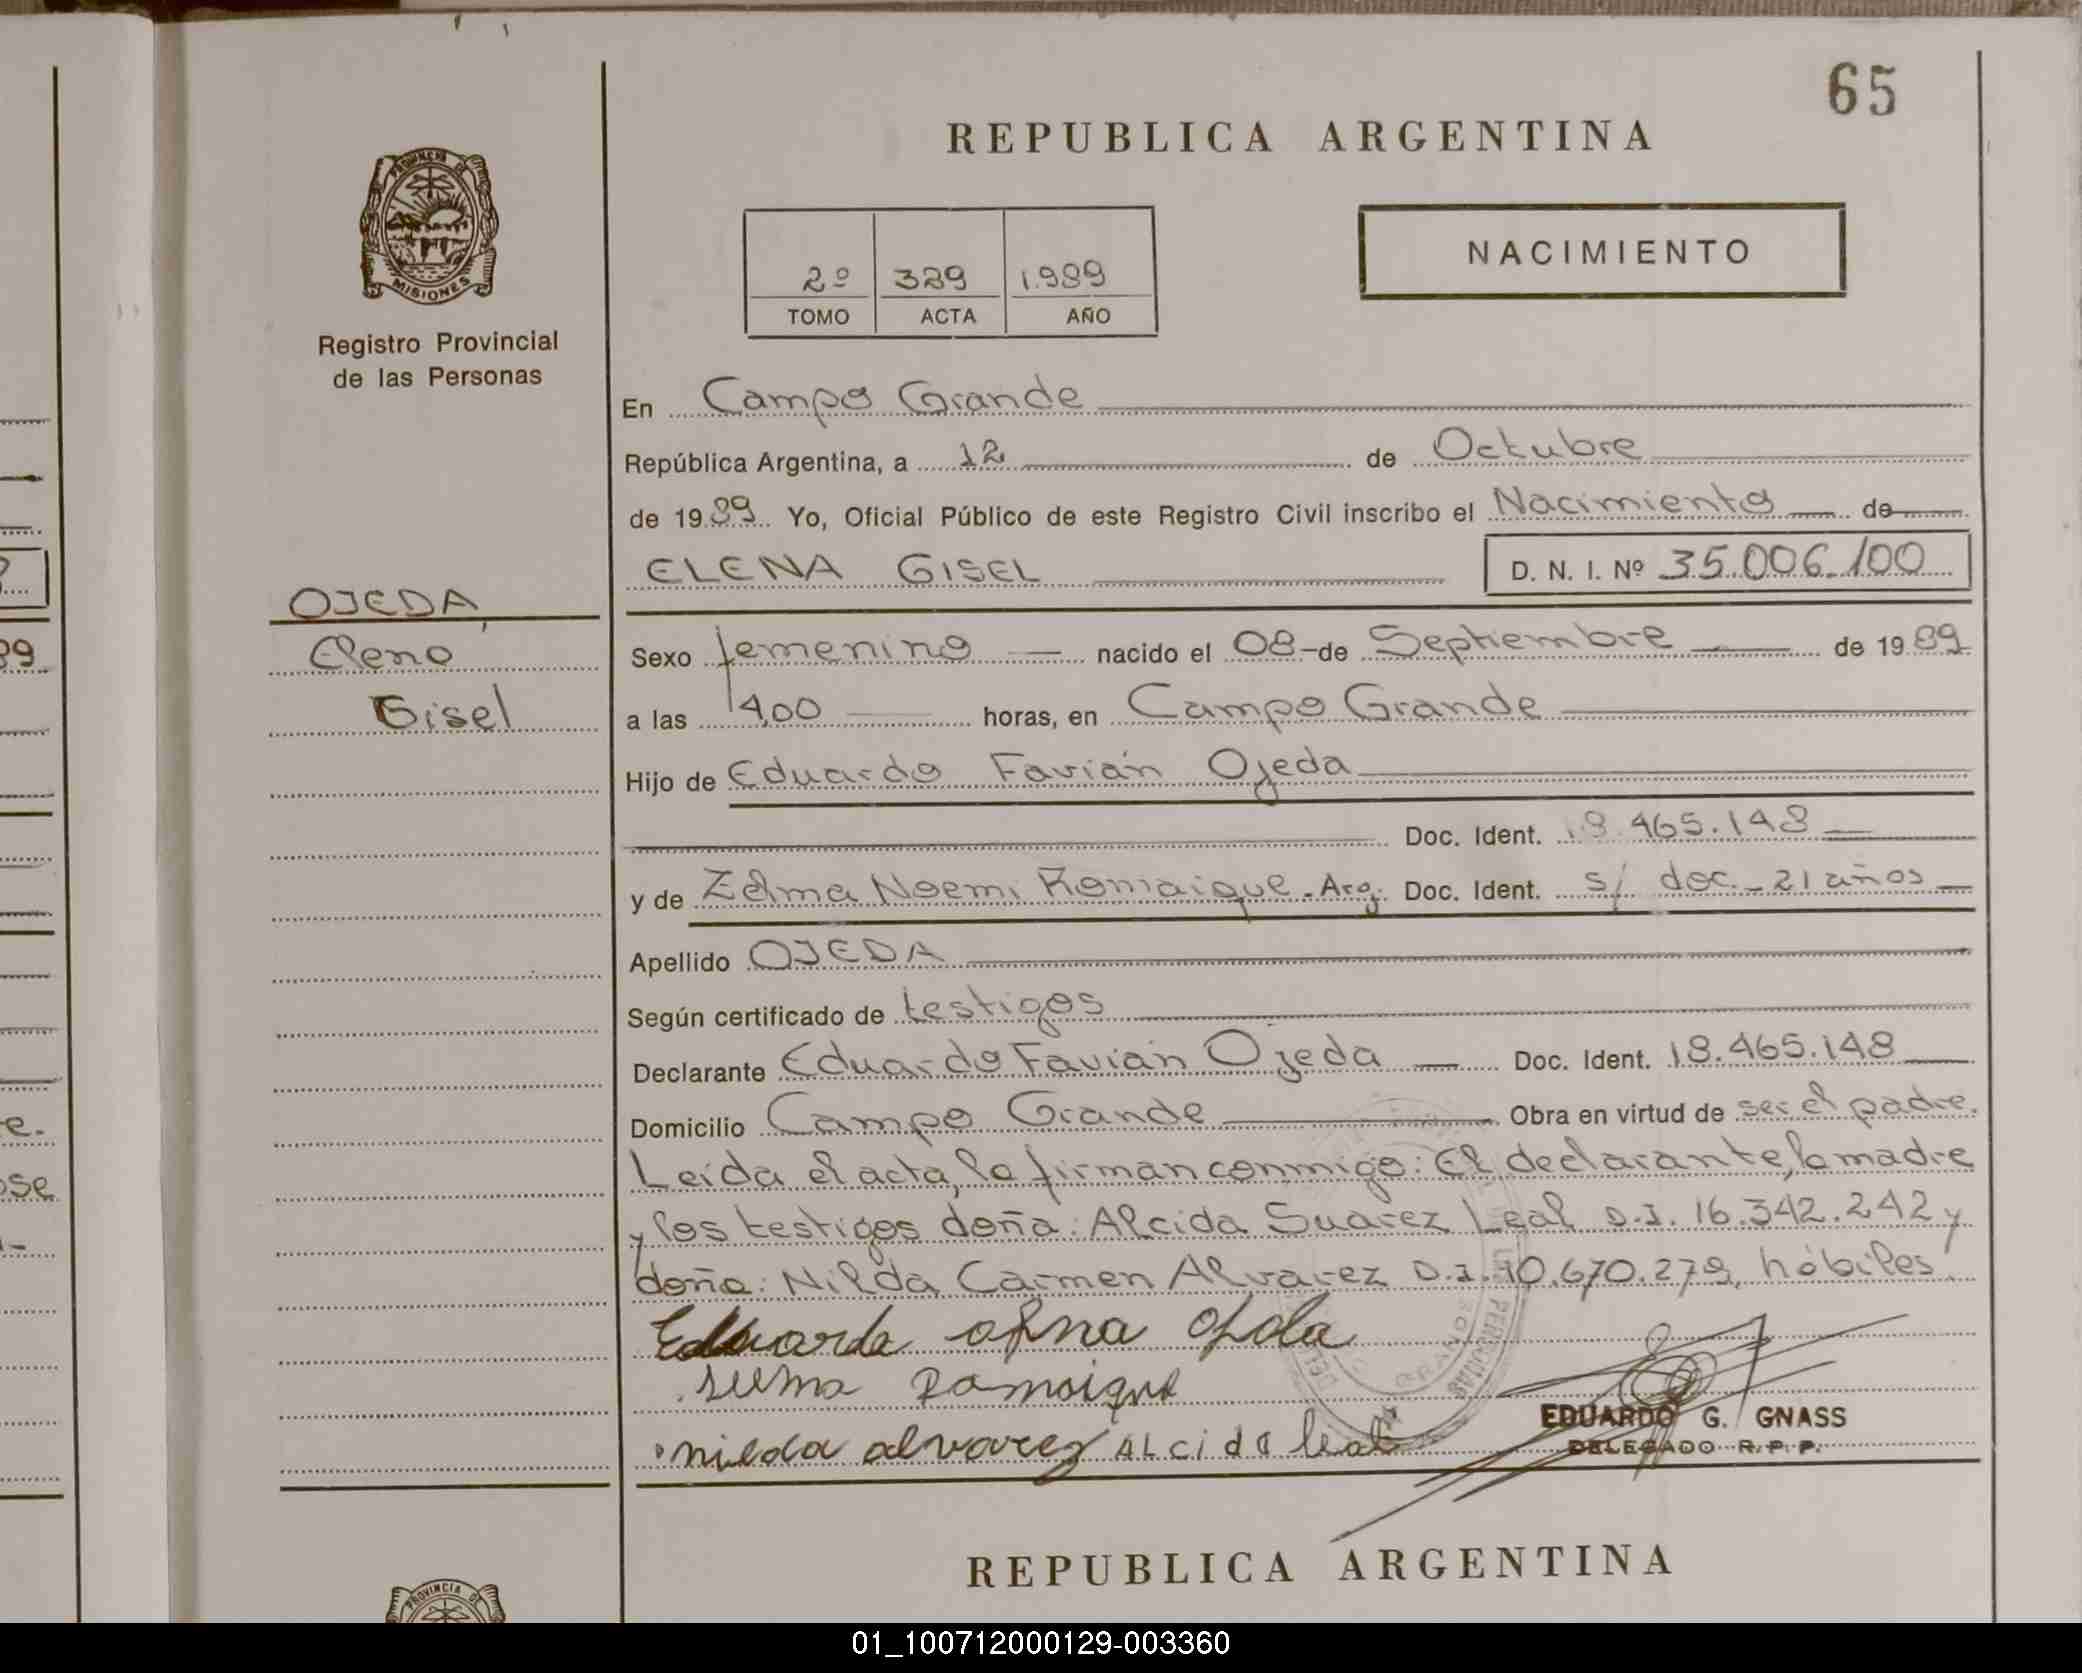 65
REPUBLICA ARGENTINA
PROVINCIA DE
MISIONES
Registro Provincial
de las Personas
NACIMIENTO
2º 389 1.989
TOMO ACTA AÑO
En Campo Grande
República Argentina, a 12 de Octubre
de 1989 Yo, Oficial Público de este Registro Civil inscribo el Nacimiento de
ELENA GISEL D. N. I. Nº 35.006.100
OJEDA
Elena
Gisel
Sexo femenino nacido el 08 de Septiembre de 1989
a las 14,00 horas, en Campo Grande
Hijo de Eduardo Favián Ojeda
Doc. Ident. 18.465.148
y de Zelma Noemi Romaique. Arg. Doc. Ident. s/ doc. - 21 años
Apellido OJEDA
Según certificado de testigos
Declarante Eduardo Favián Ojeda Doc. Ident. 18.465.148
Domicilio Campo Grande Obra en virtud de ser el padre.
Leída el acta, la firman conmigo: El declarante, la madre
y los testigos doña: Alcida Suarez Leal D.I. 16.342.242 y
doña: Nilda Carmen Alvarez D.I. 10.670.278, hábiles.
Eduardo
Romaique
nilda alvarez ALcida leal
EDUARDO G. GNASS
DELEGADO R. P. P.
REPUBLICA ARGENTINA
PROVINCIA DE
01_100712000129-003360